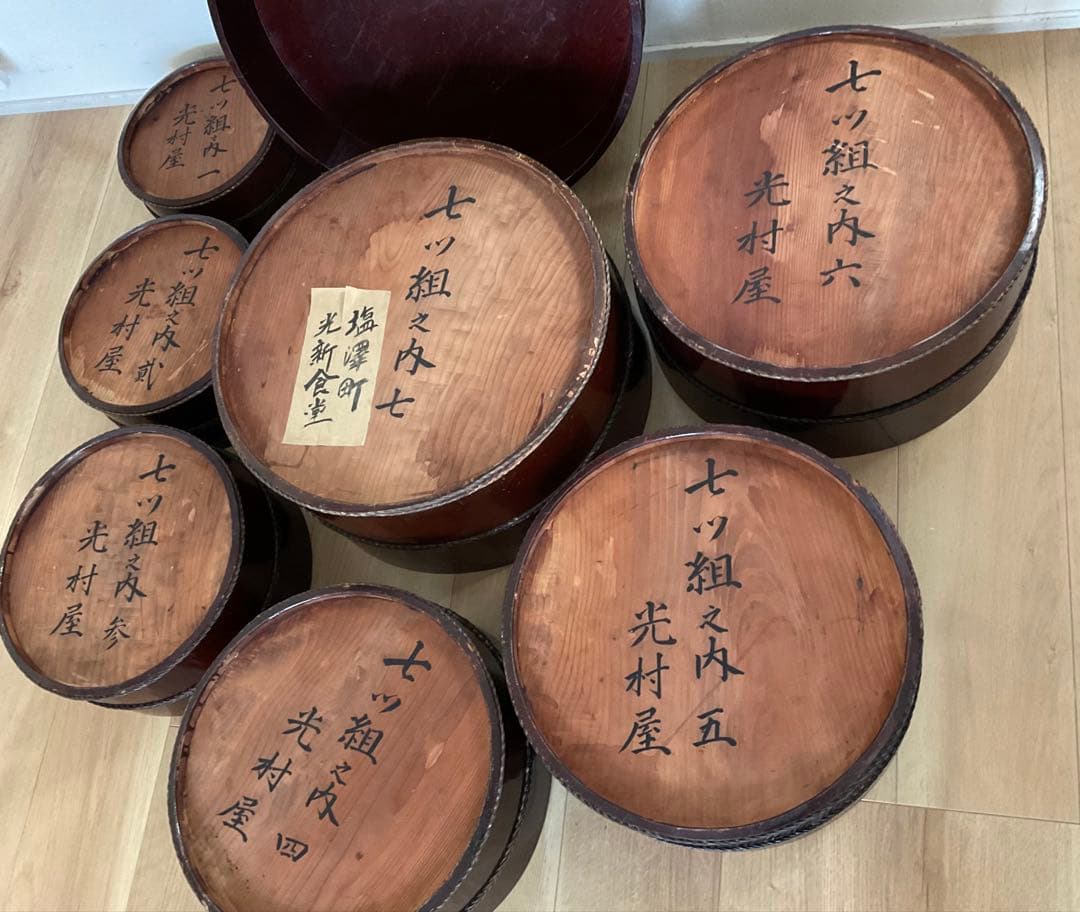 七ツ組之内一
光村屋
七ツ組之内貳
光村屋
七ツ組之内参
光村屋
七ツ組之内四
光村屋
七ツ組之内五
光村屋
七ツ組之内六
光村屋
七ツ組之内七
塩澤町
光新食堂